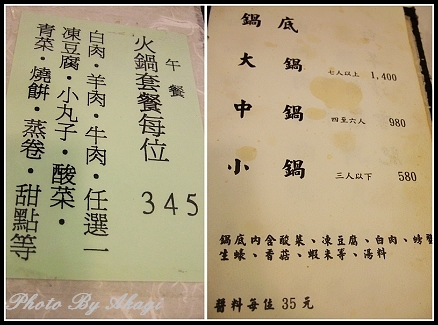 午餐
火鍋套餐每位
345
白肉·羊肉·牛肉·任選一
凍豆腐·小丸子·酸菜·
青菜·燒餅·蒸卷·甜點等
Photo By Akagi
鍋底
大鍋 七人以上 1,400
中鍋 四至六人 980
小鍋 三人以下 580
鍋底內含酸菜、凍豆腐、白肉、螃蟹
生蠔、香菇、蝦米等、湯料
醬料每位35元